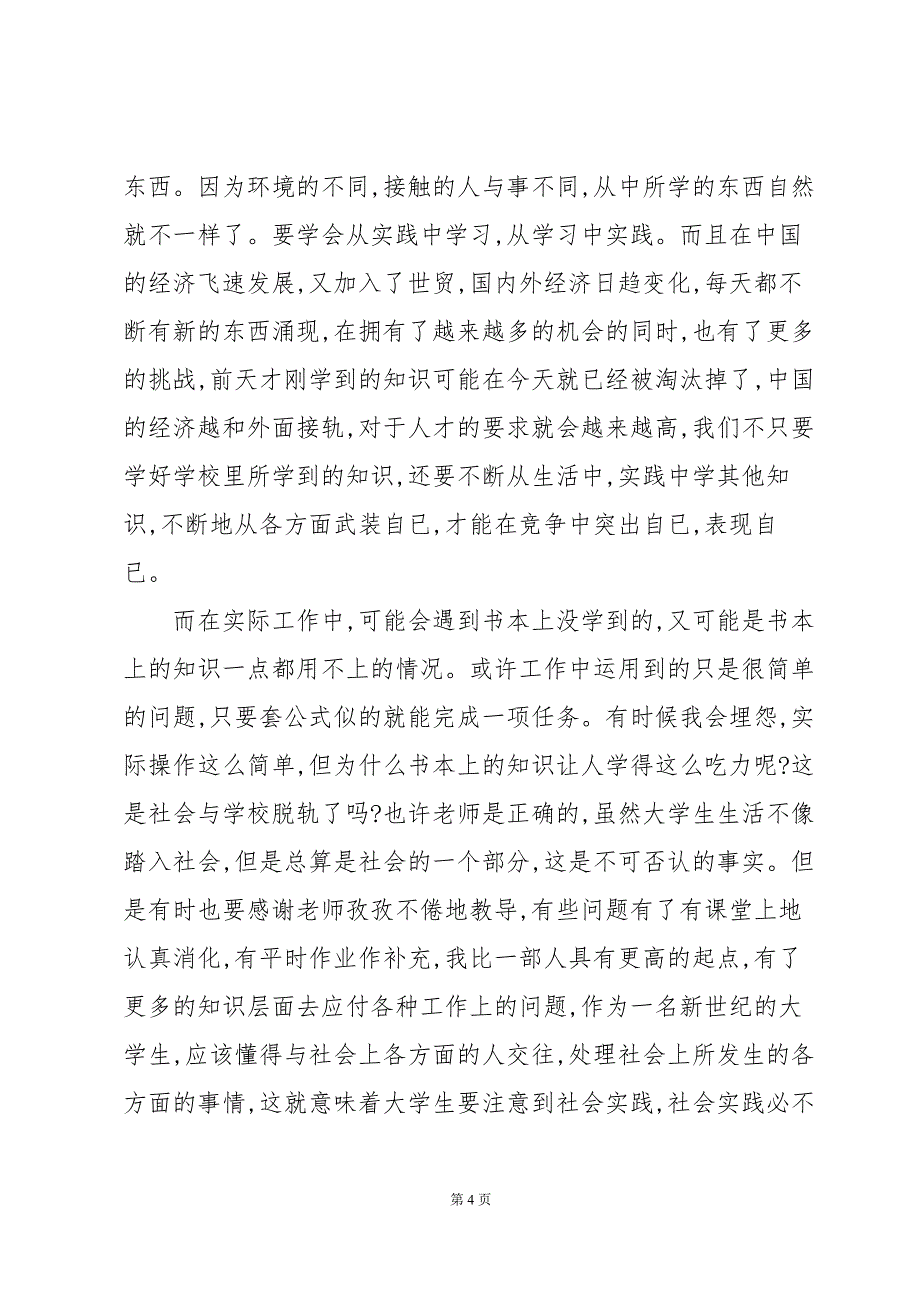 东西。因为环境的不同,接触的人与事不同,从中所学的东西自然
就不一样了。要学会从实践中学习,从学习中实践。而且在中国
的经济飞速发展,又加入了世贸,国内外经济日趋变化,每天都不
断有新的东西涌现,在拥有了越来越多的机会的同时,也有了更多
的挑战,前天才刚学到的知识可能在今天就已经被淘汰掉了,中国
的经济越和外面接轨,对于人才的要求就会越来越高,我们不只要
学好学校里所学到的知识,还要不断从生活中,实践中学其他知
识,不断地从各方面武装自已,才能在竞争中突出自已,表现自
已。
而在实际工作中,可能会遇到书本上没学到的,又可能是书本
上的知识一点都用不上的情况。或许工作中运用到的只是很简单
的问题,只要套公式似的就能完成一项任务。有时候我会埋怨,实
际操作这么简单,但为什么书本上的知识让人学得这么吃力呢?这
是社会与学校脱轨了吗?也许老师是正确的,虽然大学生生活不像
踏入社会,但是总算是社会的一个部分,这是不可否认的事实。但
是有时也要感谢老师孜孜不倦地教导,有些问题有了有课堂上地
认真消化,有平时作业作补充,我比一部人具有更高的起点,有了
更多的知识层面去应付各种工作上的问题,作为一名新世纪的大
学生,应该懂得与社会上各方面的人交往,处理社会上所发生的各
方面的事情,这就意味着大学生要注意到社会实践,社会实践必不
第 4 页